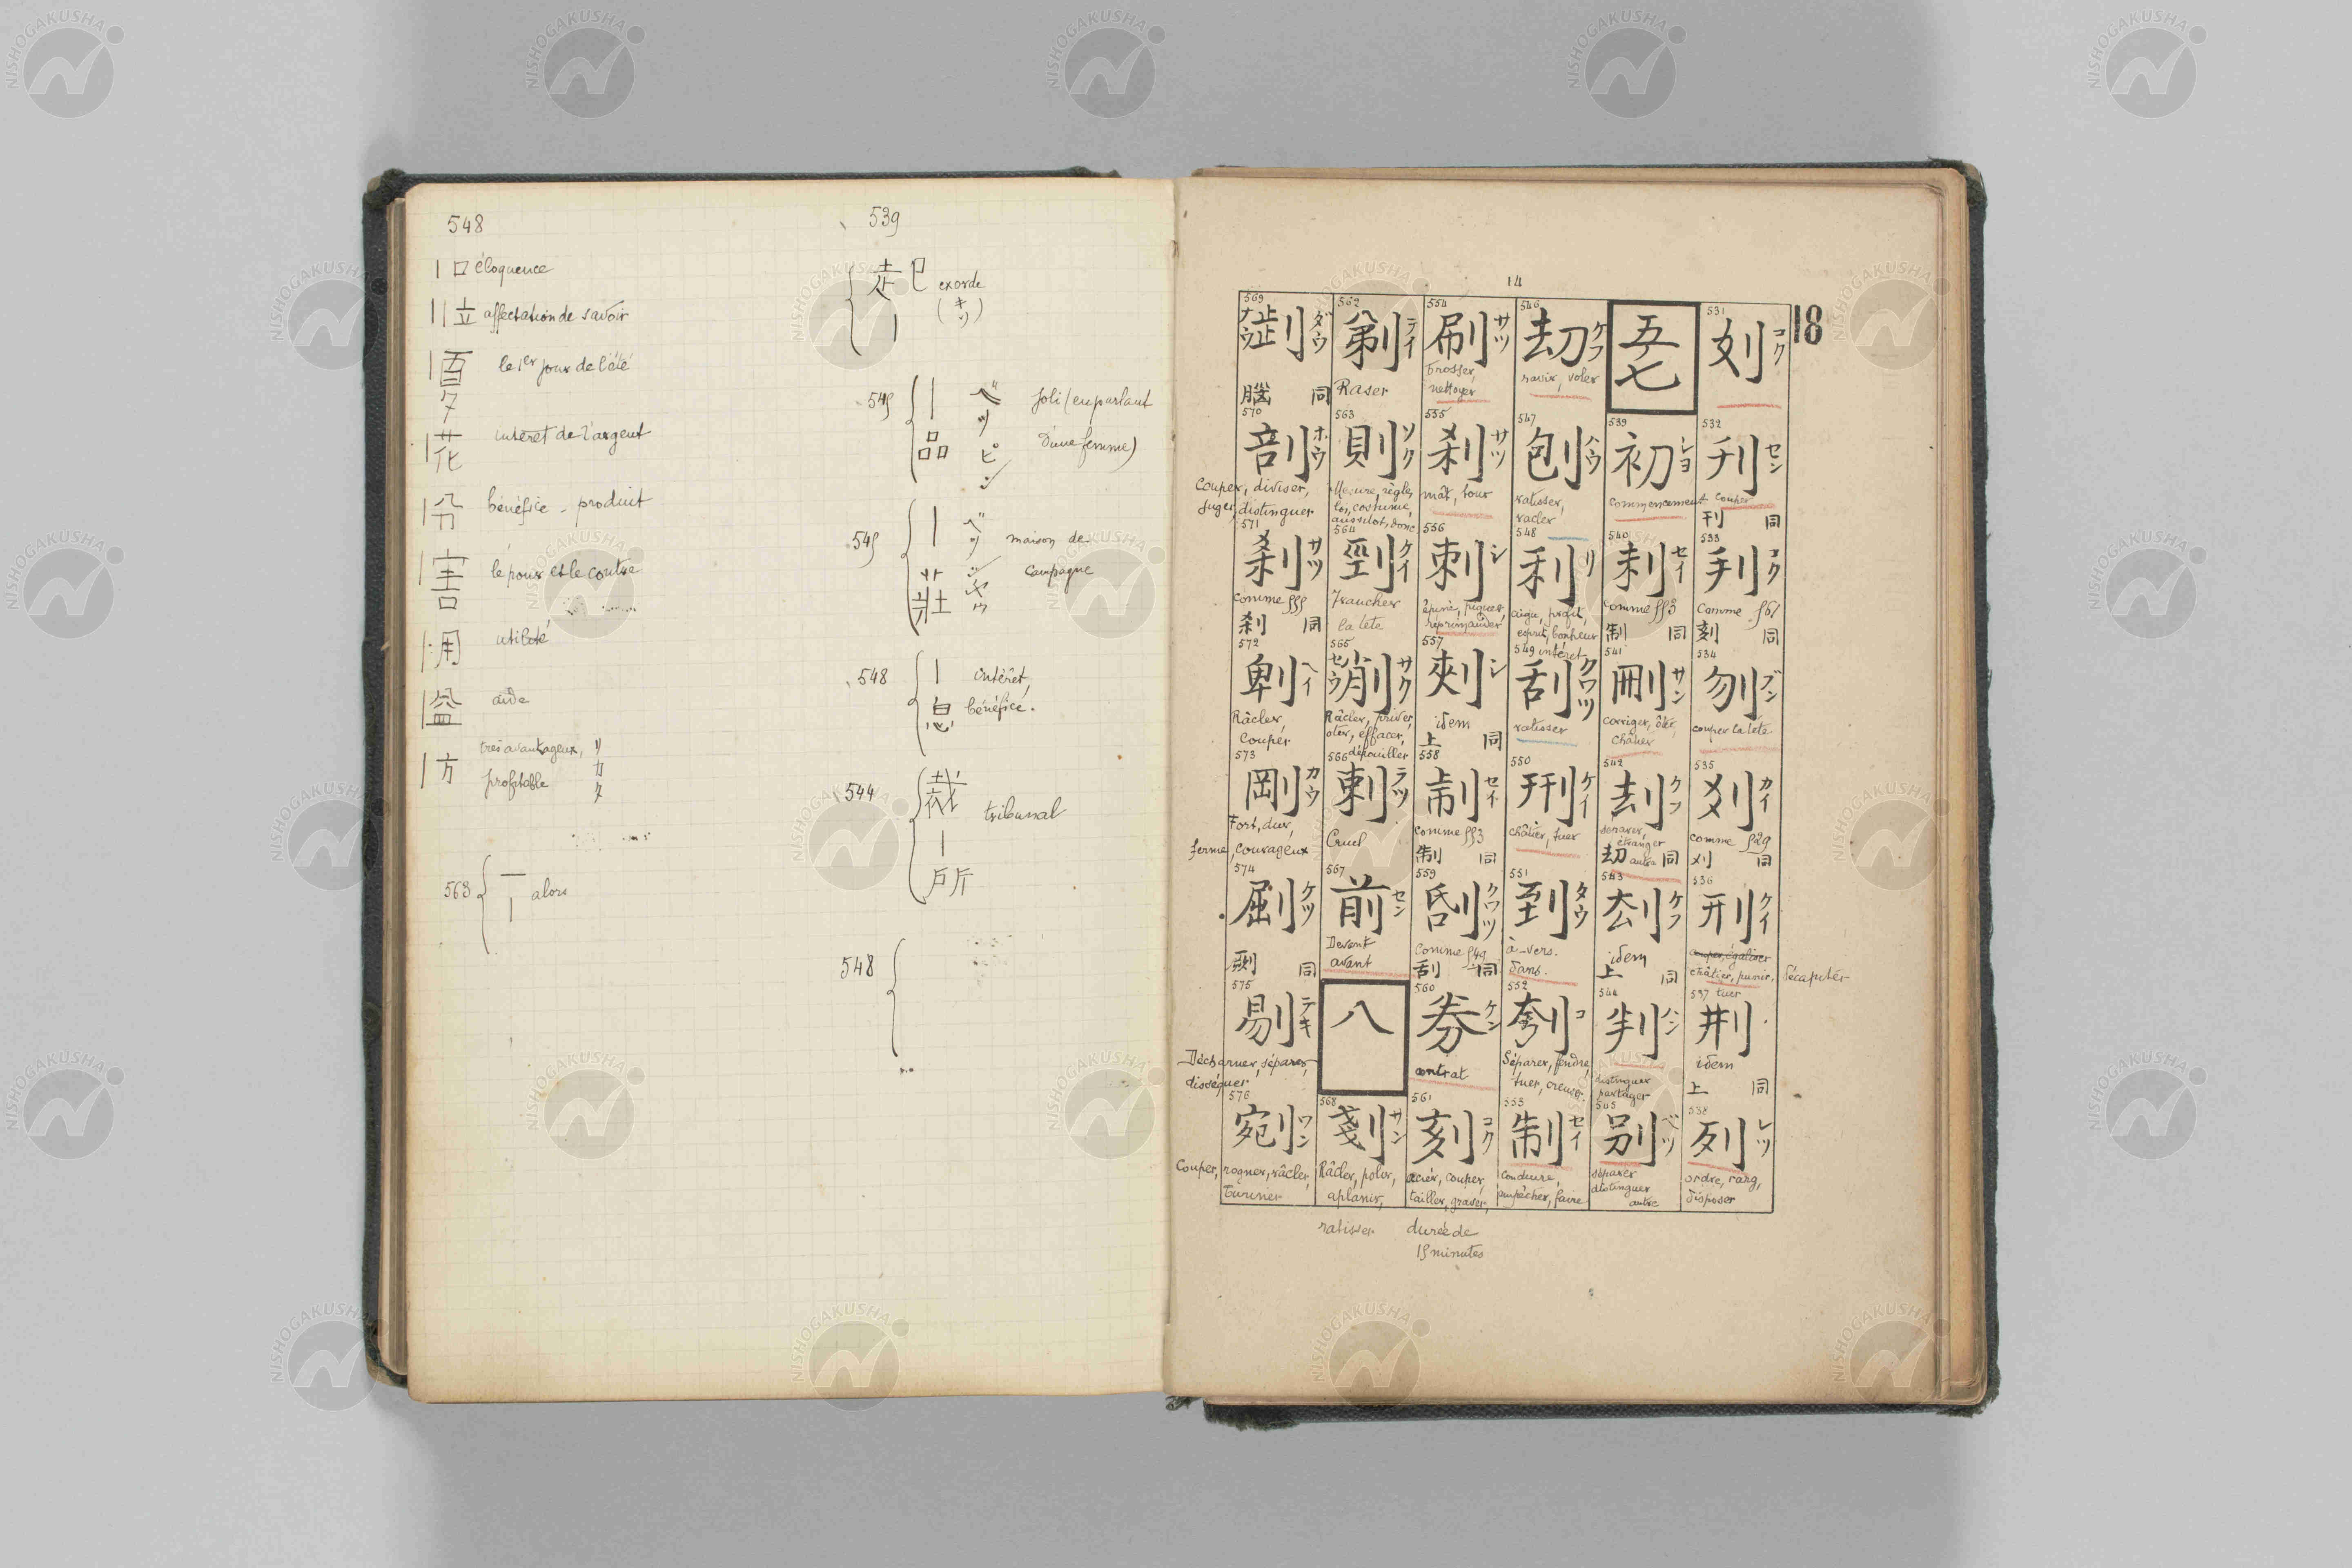 548
｜口 éloquence
｜｜立 affectation de savoir
｜百夕 le 1er jour de l'été
｜花 intéret de l'argent
｜分 bénéfice - produit
｜害 le pour et le contre
｜用 utilité
｜益 aide
｜方 très avantageux, リカタ
profitable
563 一｜ alors
539
走己 exorde
(キソ)
｜
545 ｜品 ベッピン joli (en parlant
d'une femme)
545 ｜荘 ベッソヤウ maison de
campagne
548 ｜息 intérêt,
bénéfice.
544 裁｜所 tribunal
548
14
18
531 刻 コク
532 刋 セン
couper
刊 同
533 コク
comme 561
刻 同
534 刎 ブン
couper la tête
535 カイ
comme 529
刈 同
536 刑 ケイ
couper, égaliser
châtier, punir, décapiter
tuer
537 荆
idem
上 同
538 列 レツ
ordre, rang,
disposer
五七
539 初 シヨ
commencement
540 セイ
comme 553
制 同
541 刪 サン
corriger, ôter,
châtier
542 刦 ケフ
séparer,
étranger
劫 autre 同
543 ケフ
idem
上 同
544 判 ハン
distinguer
partager
545 別 ベツ
séparer
distinguer
autre
546 刧 ケフ
ravir, voler
547 刨 ハウ
ratisser,
racler
548 利 リ
aigu, profit,
esprit, bonheur
intéret
549 刮 クワツ
ratisser
550 刑 ケイ
châtier, tuer
551 到 タウ
à - vers.
dans.
552 刳 コ
Séparer, fendre,
tuer, creuser
553 制 セイ
conduire,
empêcher, faire
554 刷 サツ
brosser,
nettoyer
555 刹 サツ
mât, tour
556 刺 シ
épine, piquer,
réprimander
557 刾 シ
idem
上 同
558 セイ
comme 553
制 同
559 クワツ
Comme 549
刮 同
560 券 ケン
contrat
561 刻 コク
acier, couper,
tailler, graver,
durée de
15 minutes
562 剃 テイ
Raser
563 則 ソク
Mesure, règle,
loi, costume,
aussitôt, donc
564 剄 ケイ
Trancher
la tête
565 削 サク セウ
Râcler, priver,
ôter, effacer,
dépouiller
566 剌 ラツ
Cruel
567 前 セン
Devant
avant
八
568 剗 サン
Râcler, polir,
aplanir,
ratisser
569 ダウ ナウ
同
570 剖 ホウ
couper, diviser,
juger, distinguer
571 刹 サツ
comme 555
刹 同
572 ヘイ
Râcler,
couper
573 剛 カウ
Fort, dur,
ferme, courageux
574 剧 ケツ
同
575 剔 テキ
Décharner, séparer,
disséquer
576 剜 ワン
couper, rogner, râcler,
buriner
NISHOGAKUSHA